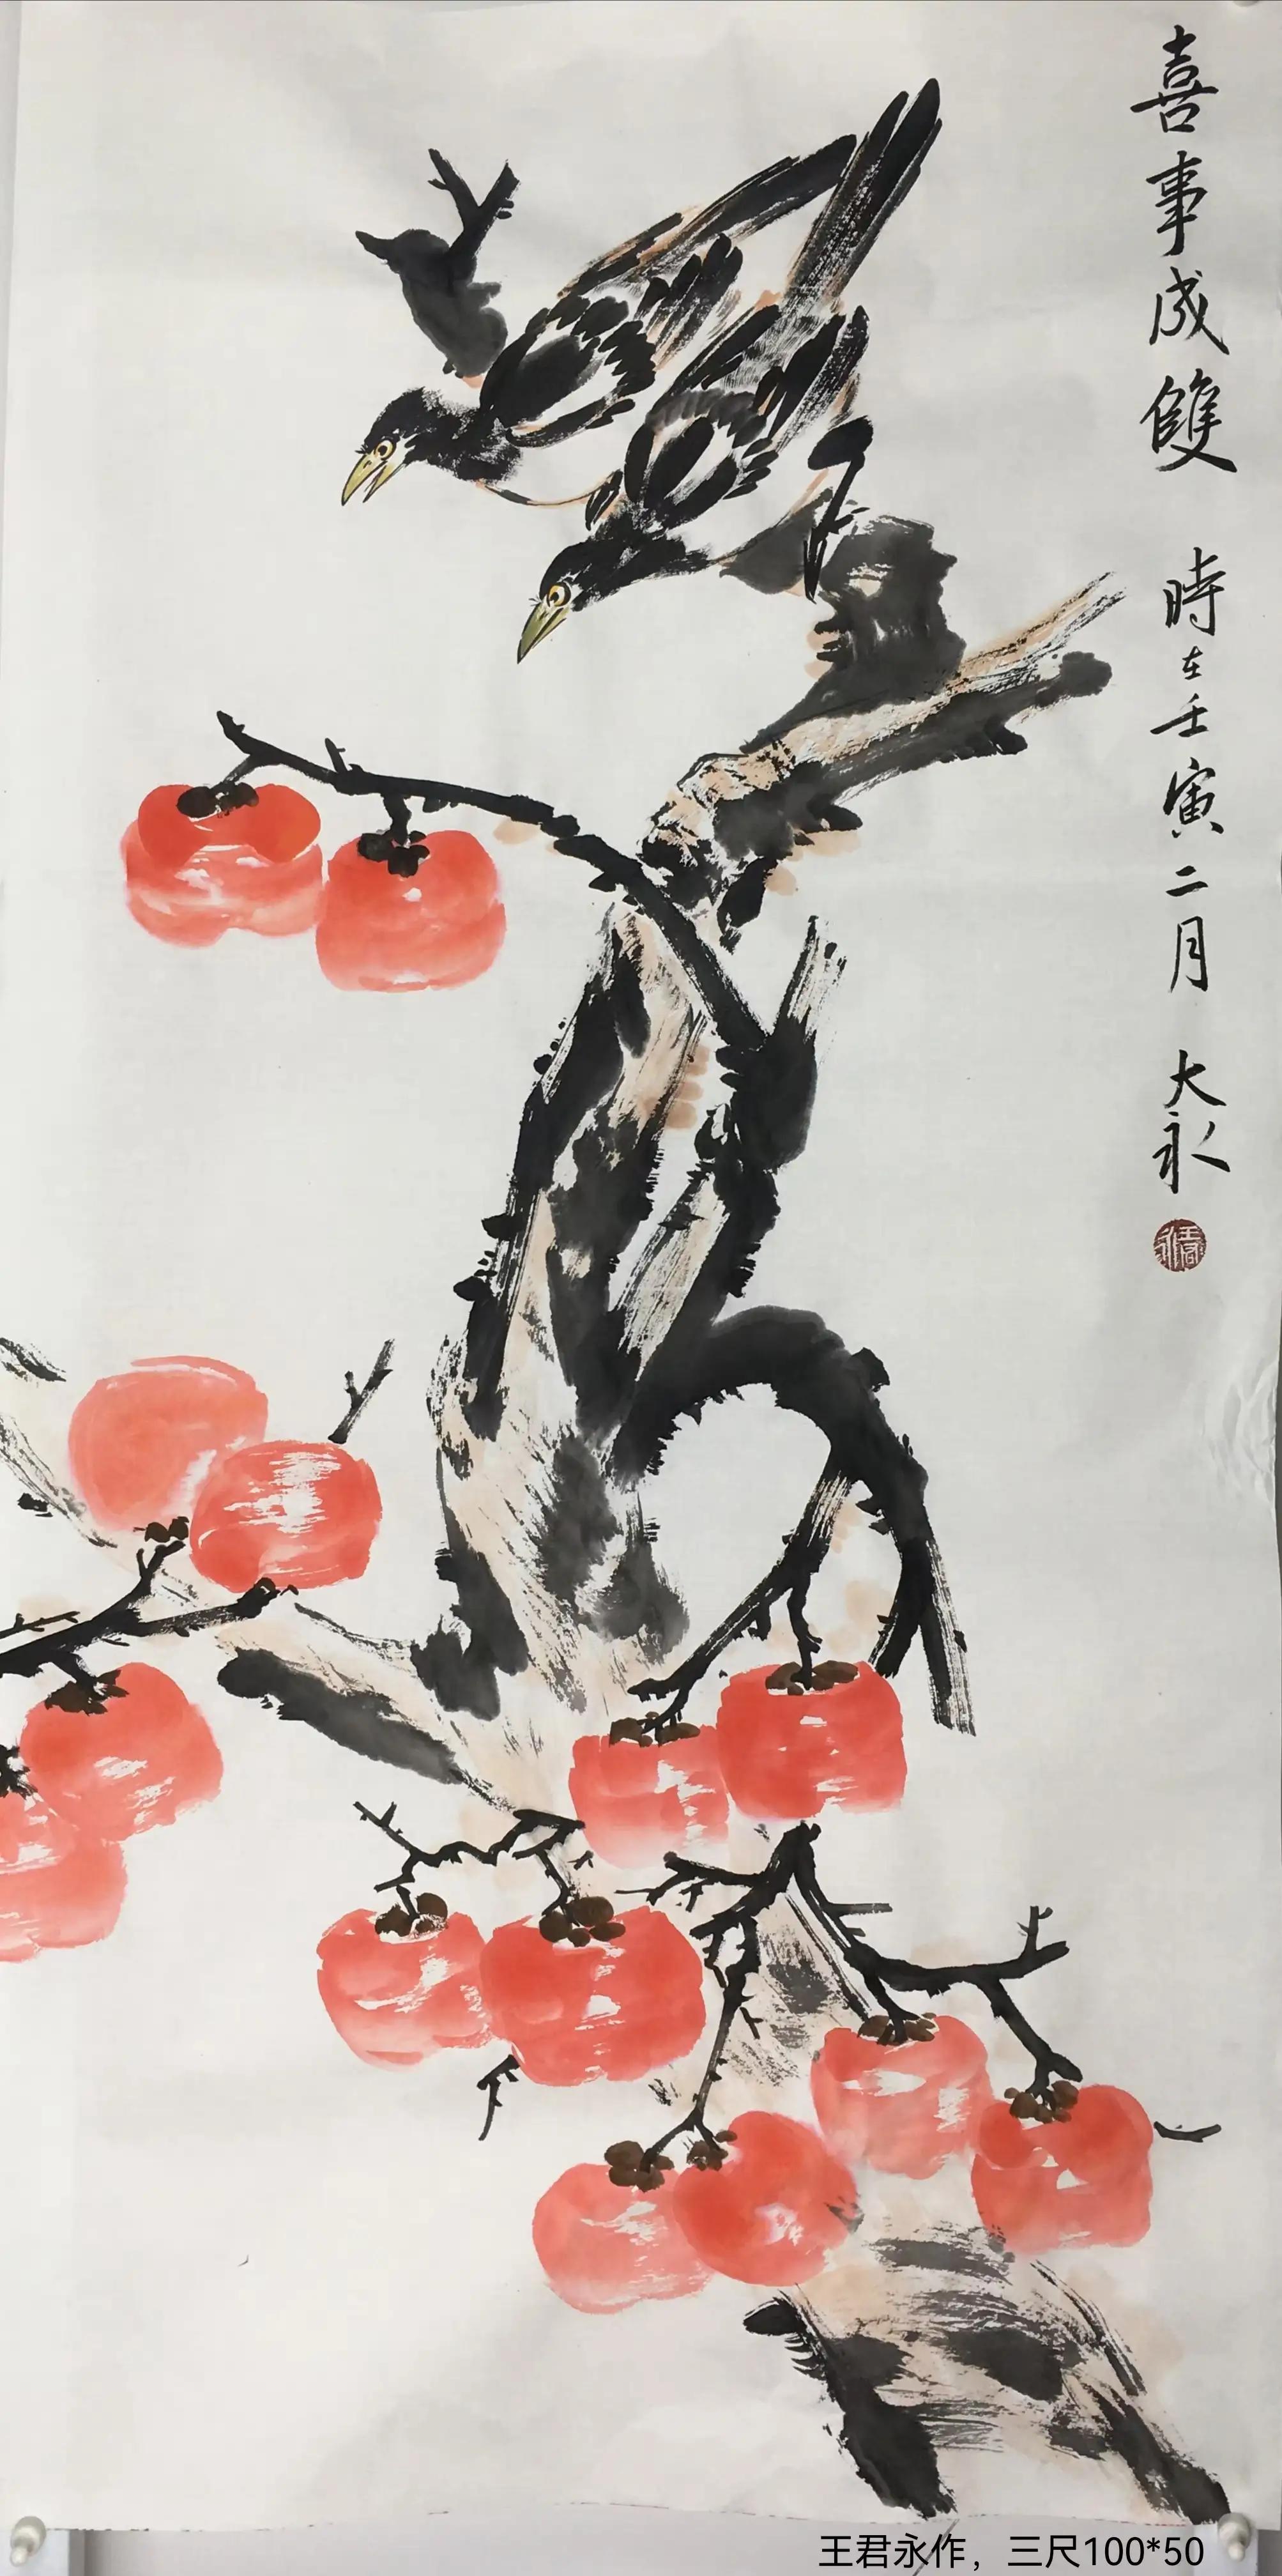 喜事成雙 時在壬寅二月 大永
王君永作，三尺100*50